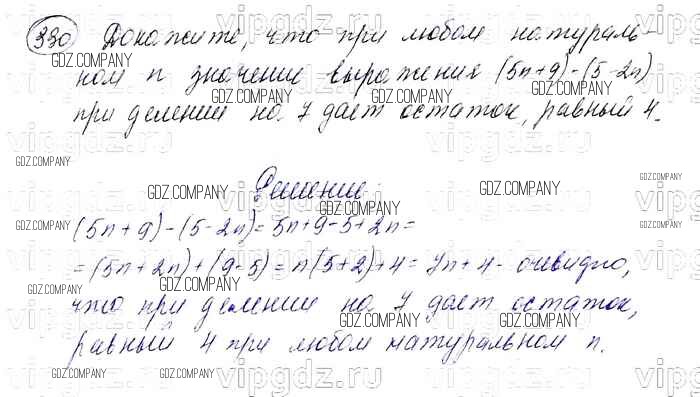 330 Докажите, что при любом натураль-
ном n значение выражения (5n+9)-(5-2n)
при делении на 7 дает остаток, равный 4.
Решение
(5n+9)-(5-2n)=5n+9-5+2n=
=(5n+2n)+(9-5)=n(5+2)+4=7n+4- очевидно,
что при делении на 7 дает остаток,
равный 4 при любом натуральном n.
GDZ.COMPANY
vipgdz.ru